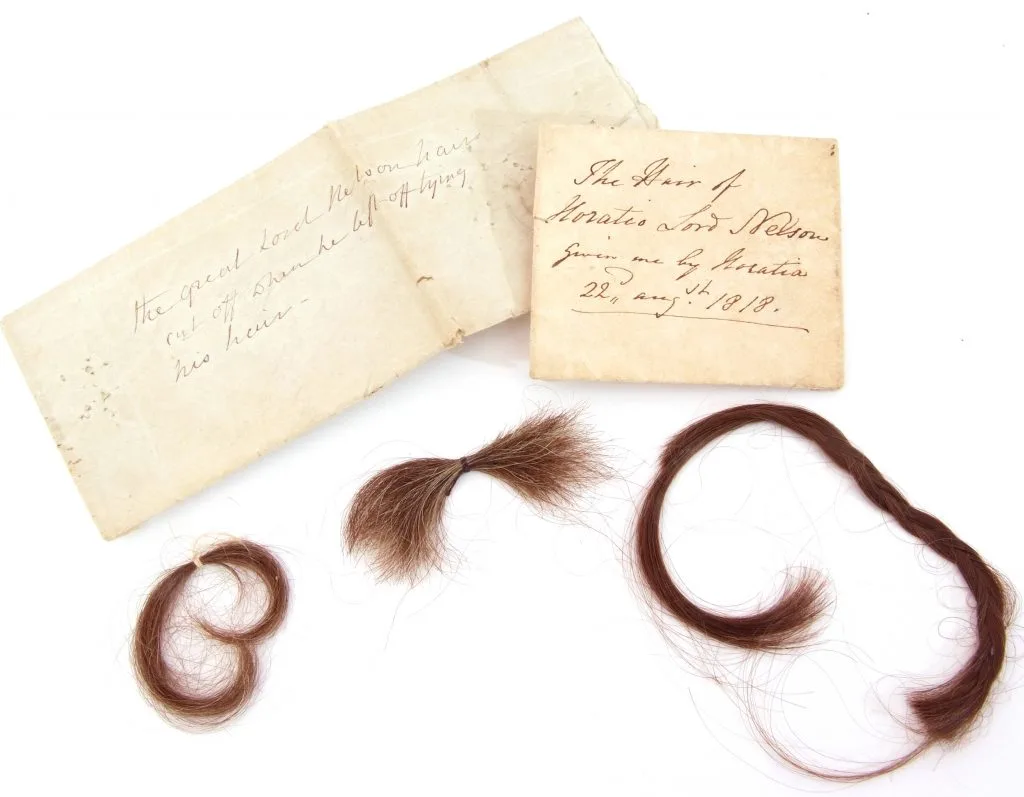 the great Lord Nelson hair
cut off when he left off tying
his hair -
The Hair of
Horatio Lord Nelson
Given me by Horatia
22,, augst. 1818.